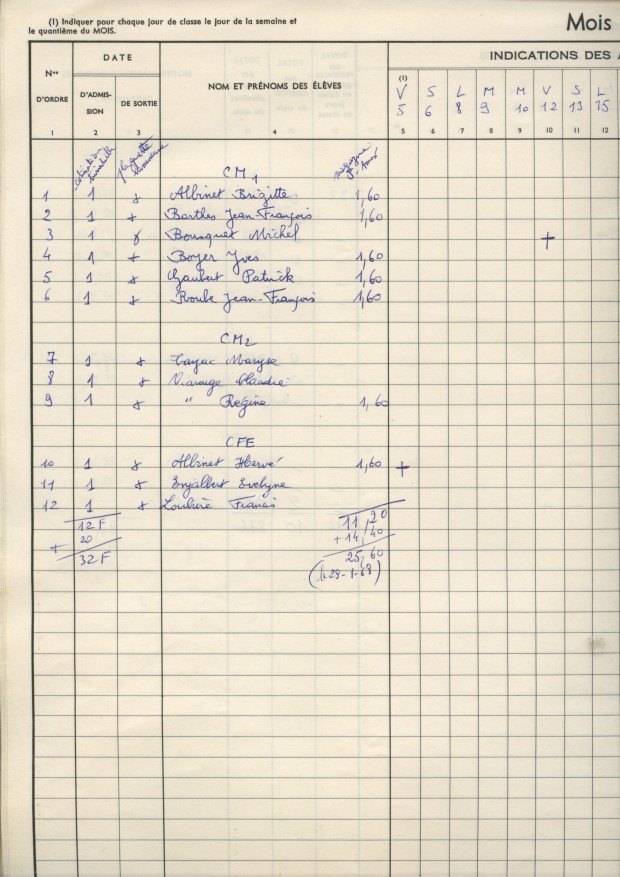 (1) Indiquer pour chaque jour de classe le jour de la semaine et
le quantième du MOIS.
Mois
INDICATIONS DES
Nos D'ORDRE DATE D'ADMISSION DE SORTIE NOM ET PRÉNOMS DES ÉLÈVES
(1) V 5 S 6 L 8 M 9 M 10 V 12 S 13 L 15
1 2 3 4 5 6 7 8 9 10 11 12
CM1
1 1 x Albinet Brigitte 1,60
2 1 + Barthes Jean-François 1,60
3 1 x Bousquet Michel +
4 1 + Boyer Yves 1,60
5 1 x Gaubert Patrick 1,60
6 1 x Roube Jean-François 1,60
CM2
7 1 x Cayac Maryse
8 1 x Viarouge Claudie
9 1 x " Régine 1,60
CFE
10 1 x Albinet Hervé 1,60 +
11 1 x Enjalbert Evelyne
12 1 x Loubière Francis
12 F 11,20
+ 20 + 14,40
32 F 25,60
(le 29-1-68)